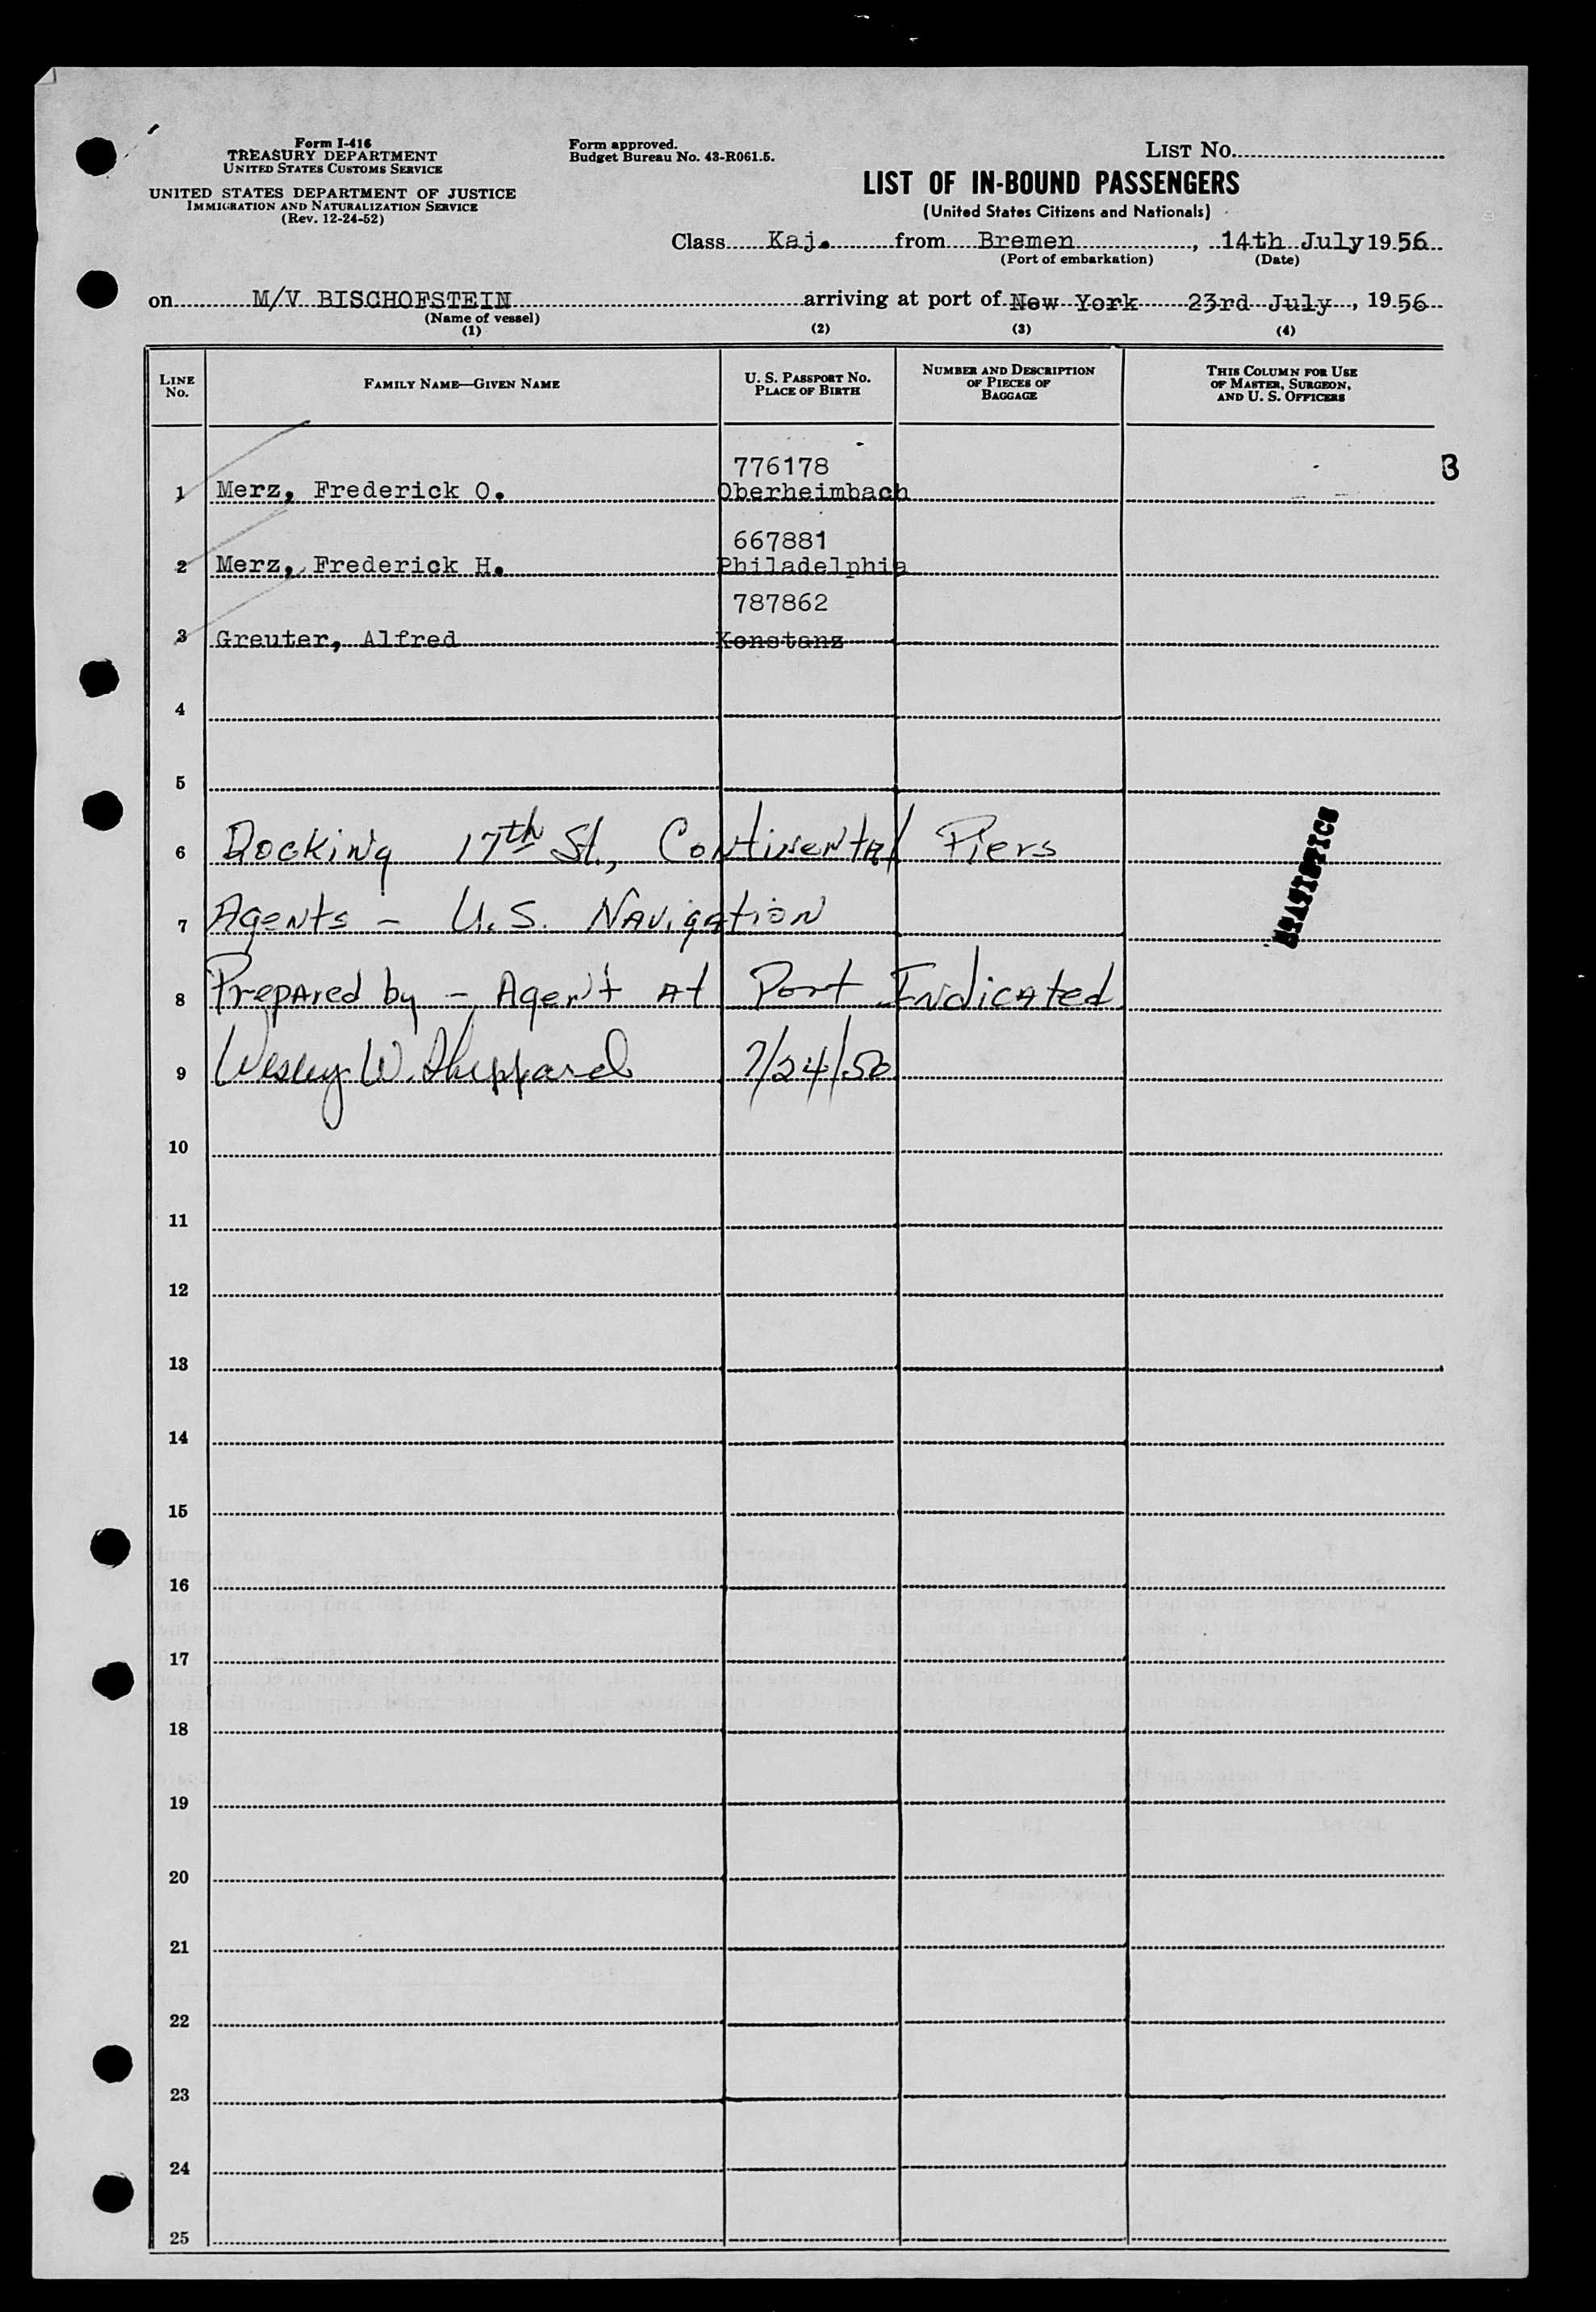 Form I-416
TREASURY DEPARTMENT
UNITED STATES CUSTOMS SERVICE
UNITED STATES DEPARTMENT OF JUSTICE
IMMIGRATION AND NATURALIZATION SERVICE
(Rev. 12-24-52)
Form approved.
Budget Bureau No. 43-R061.5.
LIST No.
LIST OF IN-BOUND PASSENGERS
(United States Citizens and Nationals)
Class Kaj. from Bremen, 14th July 1956
(Port of embarkation) (Date)
on M/V BISCHOFSTEIN arriving at port of New York 23rd July, 1956
(Name of vessel)
(1) (2) (3) (4)
LINE No. FAMILY NAME—GIVEN NAME U. S. PASSPORT No. PLACE OF BIRTH NUMBER AND DESCRIPTION OF PIECES OF BAGGAGE THIS COLUMN FOR USE OF MASTER, SURGEON, AND U. S. OFFICERS
776178
3
1 Merz, Frederick O. Oberheimbach
667881
2 Merz, Frederick H. Philadelphia
787862
3 Greuter, Alfred Konstanz
4
5
6 Docking 17th St., Continental Piers
STATISTICS
7 Agents - U.S. Navigation
8 Prepared by - Agent At Port Indicated
9 Wesley W. Sheppard 7/24/56
10
11
12
13
14
15
16
17
18
19
20
21
22
23
24
25